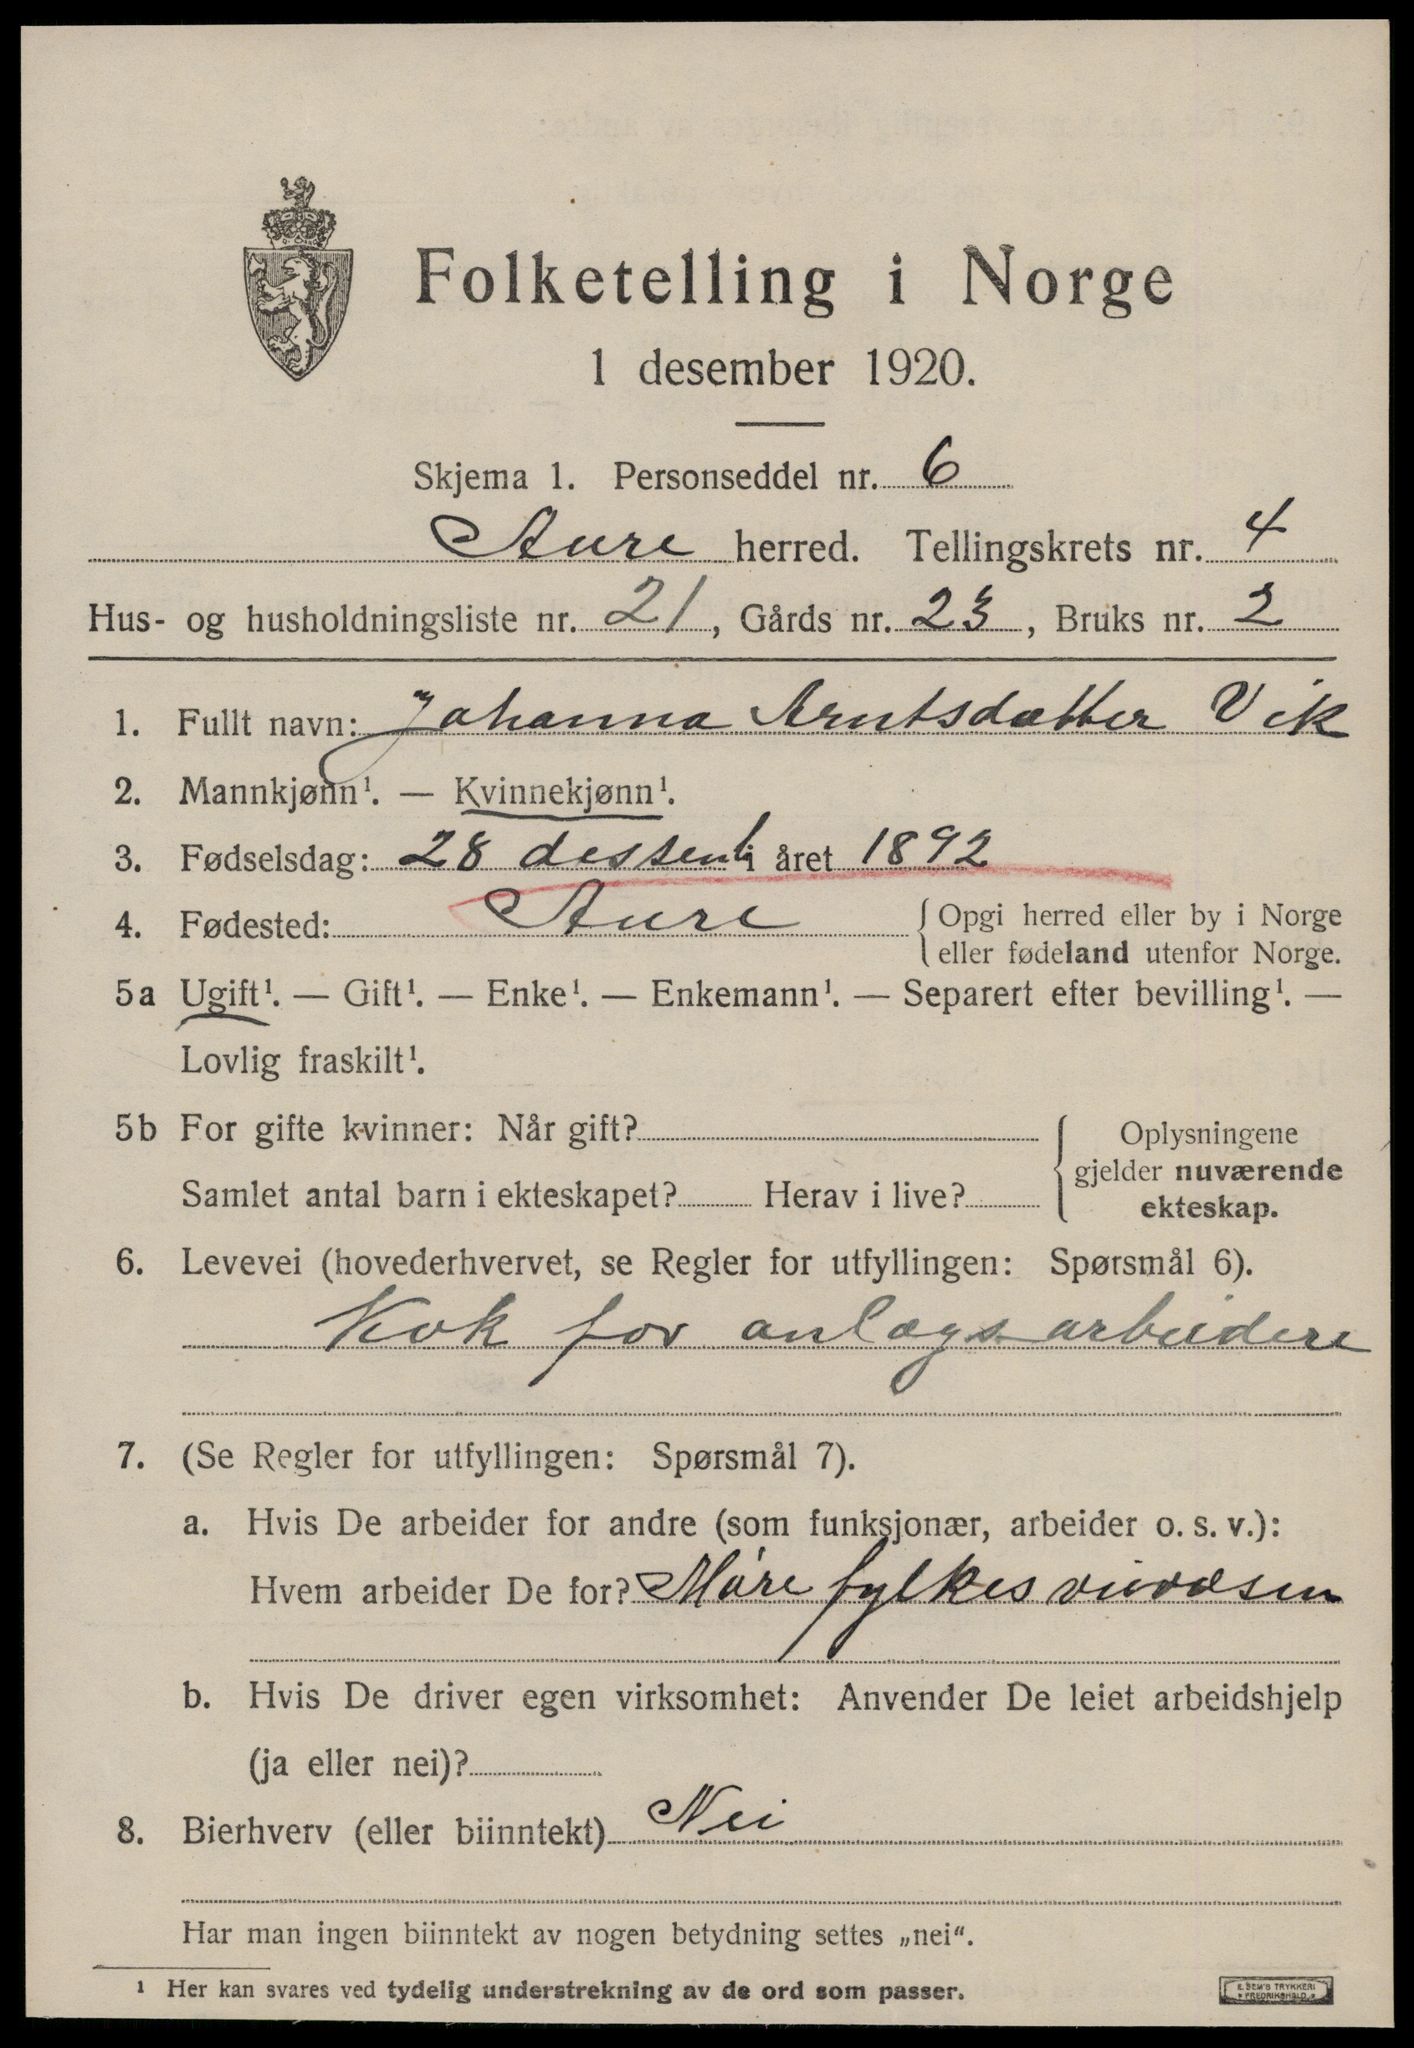 Folketelling i Norge
1 desember 1920.
Skjema 1. Personseddel nr. 6
Aure herred. Tellingskrets nr. 4
Hus- og husholdningsliste nr. 21, Gårds nr. 23, Bruks nr. 2
1. Fullt navn: Johanna Arntsdatter Vik
2. Mannkjønn¹. — Kvinnekjønn¹.
3. Fødselsdag: 28 dessemb i året 1892
4. Fødested: Aure { Opgi herred eller by i Norge
eller fødeland utenfor Norge.
5a Ugift¹. — Gift¹. — Enke¹. — Enkemann¹. — Separert efter bevilling¹. —
Lovlig fraskilt¹.
5b For gifte kvinner: Når gift? { Oplysningene
gjelder nuværende
Samlet antal barn i ekteskapet? Herav i live? ekteskap.
6. Levevei (hovederhvervet, se Regler for utfyllingen: Spørsmål 6).
Kok for anlægsarbeidere
7. (Se Regler for utfyllingen: Spørsmål 7).
a. Hvis De arbeider for andre (som funksjonær, arbeider o. s. v.):
Hvem arbeider De for? Møre fylkes
b. Hvis De driver egen virksomhet: Anvender De leiet arbeidshjelp
(ja eller nei)?
8. Bierhverv (eller biinntekt) Nei
Har man ingen biinntekt av nogen betydning settes „nei“.
¹ Her kan svares ved tydelig understrekning av de ord som passer.
E. SEM'S TRYKKERI
FREDRIKSHALD